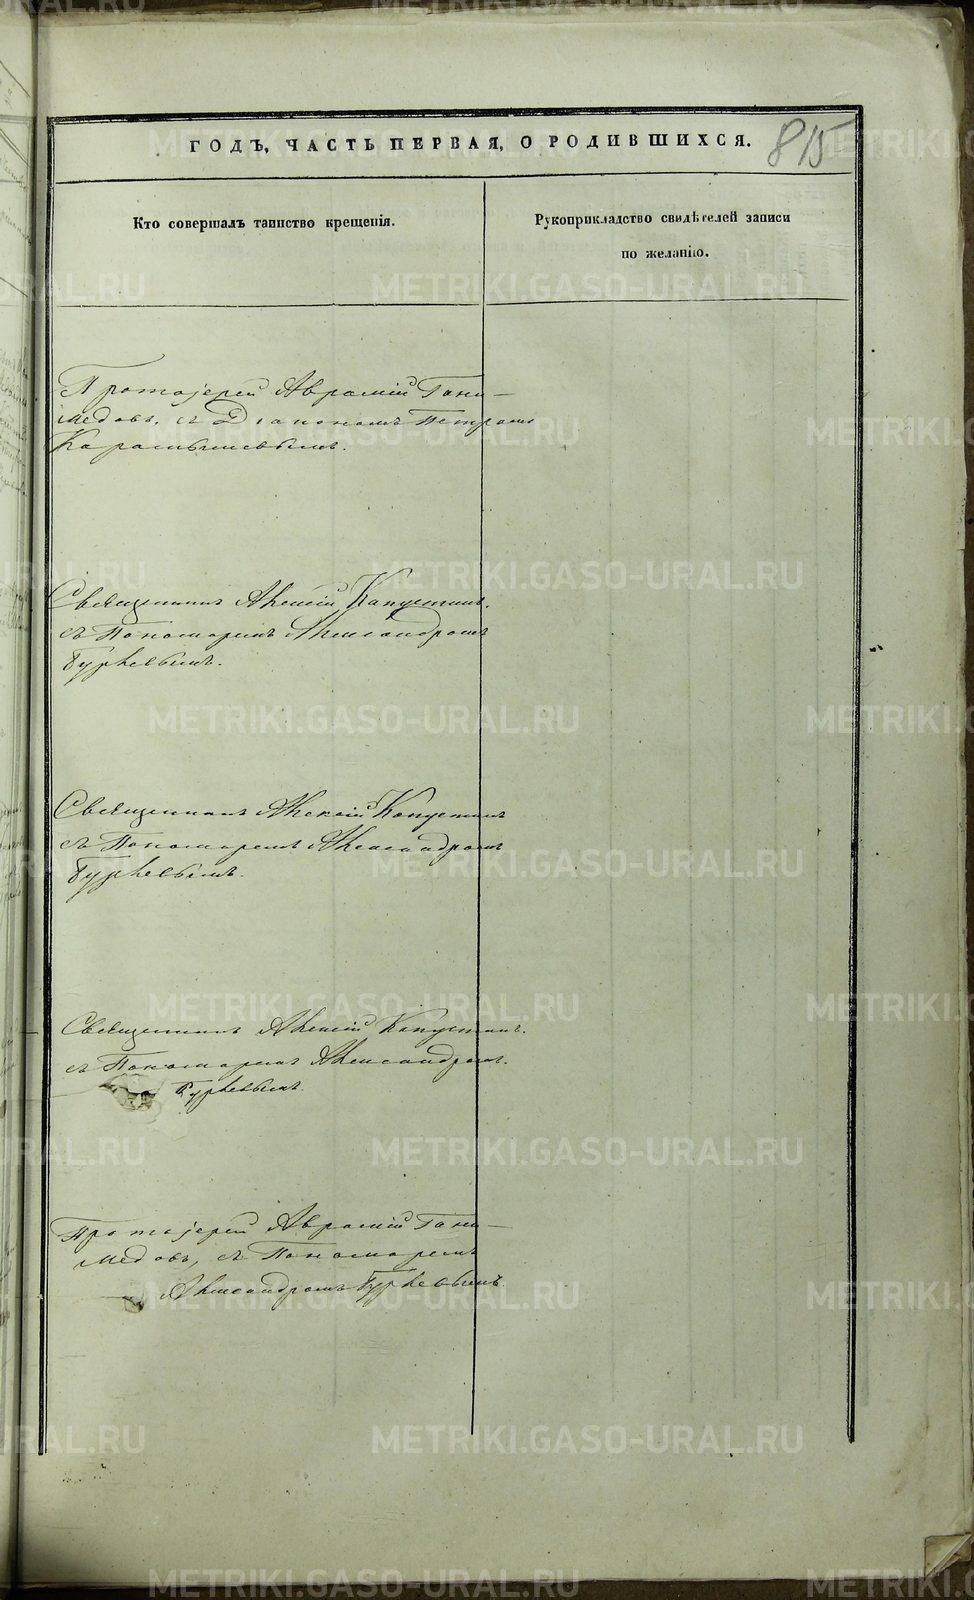 ГОДЪ, ЧАСТЬ ПЕРВАЯ, О РОДИВШИХСЯ.
815
Кто совершалъ таинство крещенія.
Рукоприкладство свидѣтелей записи
по желанію.
Протоіерей Аврамій Гани-
медовъ, съ Діакономъ Петромъ
Карамышевымъ.
Священникъ Алексій Капустинъ.
съ Пономаремъ Александромъ
Гуркевымъ.
Священникъ Алексій Капустинъ
съ Пономаремъ Александромъ
Гуркевымъ.
Священникъ Алексій Капустинъ.
съ Пономаремъ Александромъ.
Гуркевымъ.
Протоіерей Аврамій Гани-
медовъ, съ Пономаремъ
Александромъ Гуркевымъ.
METRIKI.GASO-URAL.RU